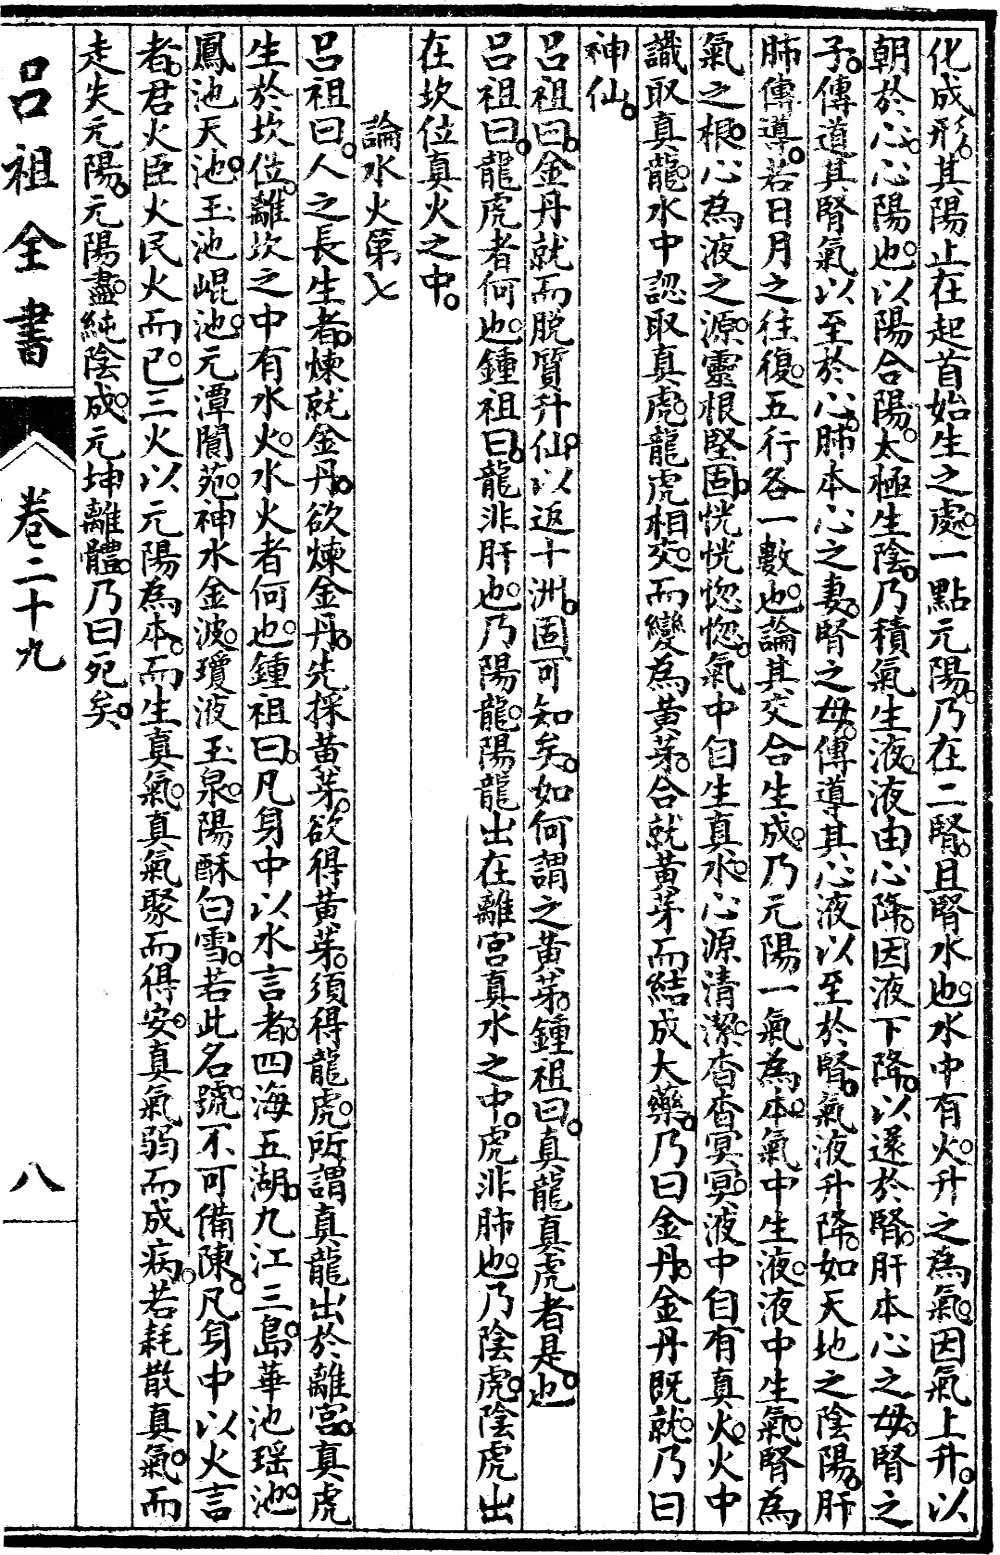 化成形其陽止在起首始生之處一點元陽乃在二腎且腎水也水中有火升之為氣因氣上升以
朝於心心陽也以陽合陽太極生陰乃積氣生液液由心降因液下降以還於腎肝本心之母腎之
子傳道其腎氣以至於心肺本心之妻腎之母傳導其心液以至於腎氣液升降如天地之陰陽肝
肺傳導若日月之往復五行各一數也論其交合生成乃元陽一氣為本氣中生液液中生氣腎為
氣之根心為液之源靈根堅固恍恍惚惚氣中自生真水心源清潔杳杳冥冥液中自有真火火中
識取真龍水中認取真虎龍虎相交而變為黃芽合就黃芽而結成大藥乃曰金丹金丹既就乃曰
神仙
呂祖曰金丹就而脫質升仙以返十洲固可知矣如何謂之黃芽鍾祖曰真龍真虎者是也
呂祖曰龍虎者何也鍾祖曰龍非肝也乃陽龍陽龍出在離宮真水之中虎非肺也乃陰虎陰虎出
在坎位真火之中
論水火第七
呂祖曰人之長生者煉就金丹欲煉金丹先採黃芽欲得黃芽須得龍虎所謂真龍出於離宮真虎
生於坎位離坎之中有水火水火者何也鍾祖曰凡身中以水言者四海五湖九江三島華池瑤池
鳳池天池玉池崐池元潭閬苑神水金波瓊液玉泉陽酥白雪若此名號不可備陳凡身中以火言
者君火臣火民火而已三火以元陽為本而生真氣真氣聚而得安真氣弱而成病若耗散真氣而
走失元陽元陽盡純陰成元坤離體乃曰死矣
呂祖全書
卷二十九
八